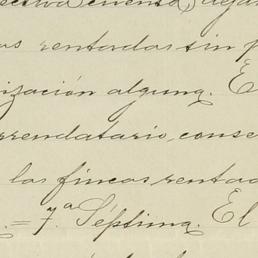 cuenta, dejar
as rentadas sin p
ización alguna. E
rrendatario conse
las fincas rentad
.= 7.ª Séptima. El